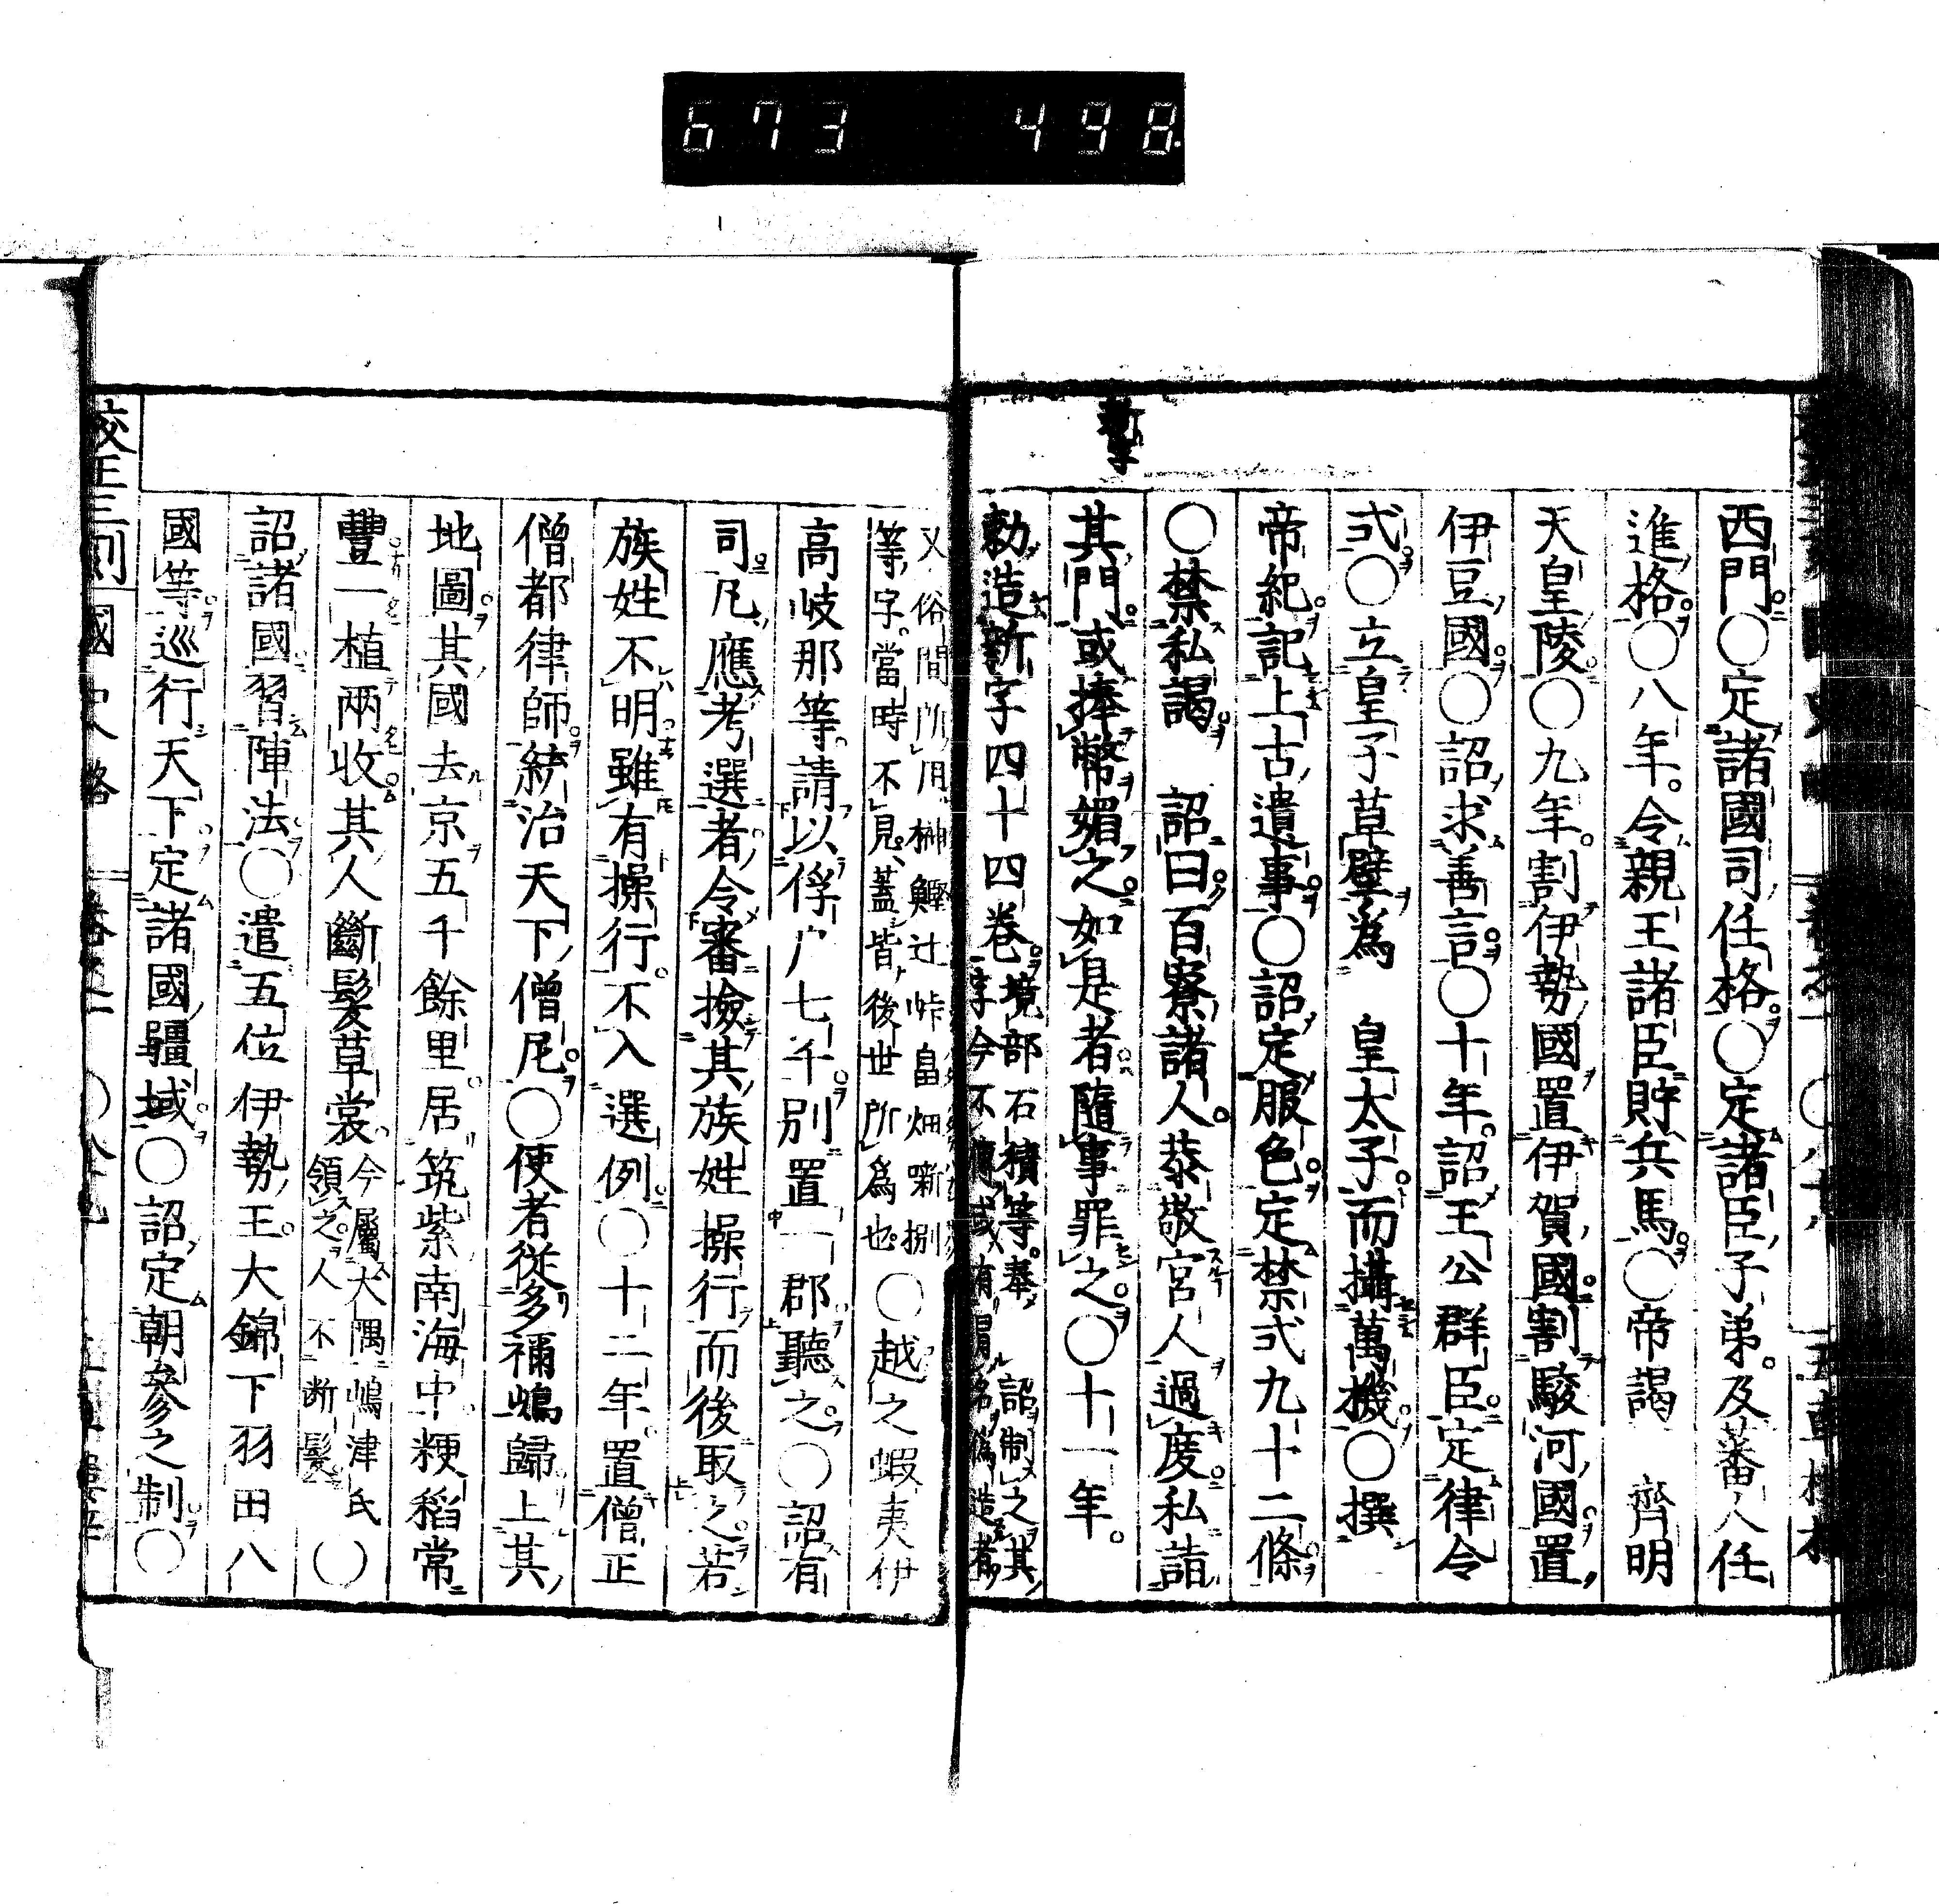 673 498
新字
西門○定諸國司任格○定諸臣子弟及蕃人任
進格○八年令親王諸臣貯兵馬○帝謁 齊明
天皇陵○九年割伊勢國置伊賀國割駿河國置
伊豆國○詔求善言○十年詔王公群臣定律令
式○立皇子草壁爲 皇太子而攝萬機○撰
帝紀記上古遺事○詔定服色定禁式九十二條
○禁私謁 詔曰百寮諸人恭敬宮人過度私詣
其門或捧幣媚之如是者隨事罪之○十一年
勅造新字四十四卷境部石積等奉 詔制之其
字今不傳或有冒名僞造者
又俗間所用榊鰹辻峠畠畑噺捌
等字當時不見蓋皆後世所爲也○越之蝦夷伊
高岐那等請以俘户七千別置一郡聽之○詔有
司凡應考選者令審撿其族姓操行而後取之若
族姓不明雖有操行不入選例○十二年置僧正
僧都律師統治天下僧尼○使者從多禰嶋歸上其
地圖其國去京五千餘里居筑紫南海中粳稻常
豐一植兩收其人斷髮草裳今屬大隅嶋津氏
領之人不断髮○
詔諸國習陣法○遣五位伊勢王大錦下羽田八
國等巡行天下定諸國疆域○詔定朝參之制○
校正三刻國史略